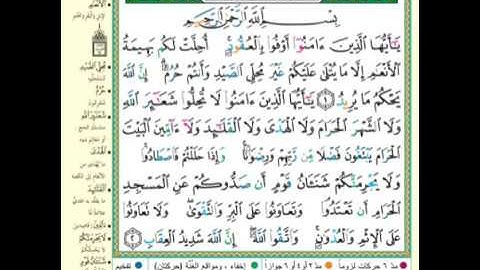 بِسْمِ ٱللَّهِ ٱلرَّحْمَٰنِ ٱلرَّحِيمِ
يَٰٓأَيُّهَا ٱلَّذِينَ ءَامَنُوٓا۟ أَوْفُوا۟ بِٱلْعُقُودِ ۚ أُحِلَّتْ لَكُم بَهِيمَةُ
ٱلْأَنْعَٰمِ إِلَّا مَا يُتْلَىٰ عَلَيْكُمْ غَيْرَ مُحِلِّى ٱلصَّيْدِ وَأَنتُمْ حُرُمٌ ۗ إِنَّ ٱللَّهَ
يَحْكُمُ مَا يُرِيدُ ١ يَٰٓأَيُّهَا ٱلَّذِينَ ءَامَنُوا۟ لَا تُحِلُّوا۟ شَعَٰٓئِرَ ٱللَّهِ
وَلَا ٱلشَّهْرَ ٱلْحَرَامَ وَلَا ٱلْهَدْىَ وَلَا ٱلْقَلَٰٓئِدَ وَلَآ ءَآمِّينَ ٱلْبَيْتَ
ٱلْحَرَامَ يَبْتَغُونَ فَضْلًا مِّن رَّبِّهِمْ وَرِضْوَٰنًا ۚ وَإِذَا حَلَلْتُمْ فَٱصْطَادُوا۟ ۚ
وَلَا يَجْرِمَنَّكُمْ شَنَـَٔانُ قَوْمٍ أَن صَدُّوكُمْ عَنِ ٱلْمَسْجِدِ
ٱلْحَرَامِ أَن تَعْتَدُوا۟ ۘ وَتَعَاوَنُوا۟ عَلَى ٱلْبِرِّ وَٱلتَّقْوَىٰ ۖ وَلَا تَعَاوَنُوا۟
عَلَى ٱلْإِثْمِ وَٱلْعُدْوَٰنِ ۚ وَٱتَّقُوا۟ ٱللَّهَ ۖ إِنَّ ٱللَّهَ شَدِيدُ ٱلْعِقَابِ ٢
مد ٦ حركات لزوماً مد ٢ أو ٤ أو ٦ جوازاً إخفاء، ومواقع الغنّة (حركتان) تفخيم